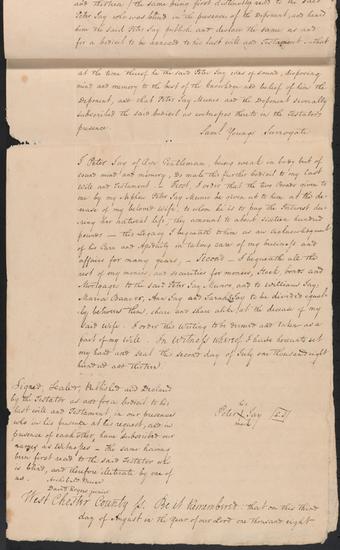 and thirteen, the same being first distinctly read to the said
Peter Jay who was blind in the presence of the deponent, and heard
him the said Peter Jay publish and declare the same as and
for a Codicil to be annexed to his last will and Testament – that
at the time thereof he the said Peter Jay was of sound, disposing
mind and memory to the best of the knowledge and belief of him the
deponent, and that Peter Jay Munro and the deponent severally
subscribed the said Codicil as witnesses thereto in the Testator's
presence
Saml Youngs Surrogate
I Peter Jay of Rye Gentleman, being weak in body but of
sound mind and memory, do make this further Codicil to my Last
Will and Testament – First, I order that the two Bonds given to
me by my Nephew Peter Jay Munro be given up to him at the de-
cease of my beloved wife, to whom he is to pay the Interest du-
ring her natural life, they amount to about sixteen hundred
pounds – this Legacy I bequeath to him as an acknowledgment
of his Care and Assiduity in taking care of my business and
affairs for many years, – Second – I bequeath all the
rest of my monies, and securities for monies, Stock, bonds and
Mortgages to the said Peter Jay Munro, and to William Jay,
Maria Banyer, Ann Jay and Sarah Jay to be divided equal-
ly between them, share and share alike, at the decease of my
Said Wife. I order this writing to be deemed and taken as a
part of my Will. In Witness whereof I have hereunto set
my hand and seal the second day of July one thousand eight
hundred and thirteen
his
Peter X Jay [LS]
mark
Signed, Sealed, Published and Declared
by the Testator as and for a Codicil to his
Last Will and Testament, in our presence
who in his presence at his request, and in
presence of each other, have Subscribed our
names as Witnesses – the same having
been first read to the said Testator who
is blind, and therefore dictated by one of
us.
David Rogers junior
West Chester County Ss. Be it Remembered that on this third
day of August in the Year of our Lord one thousand eight